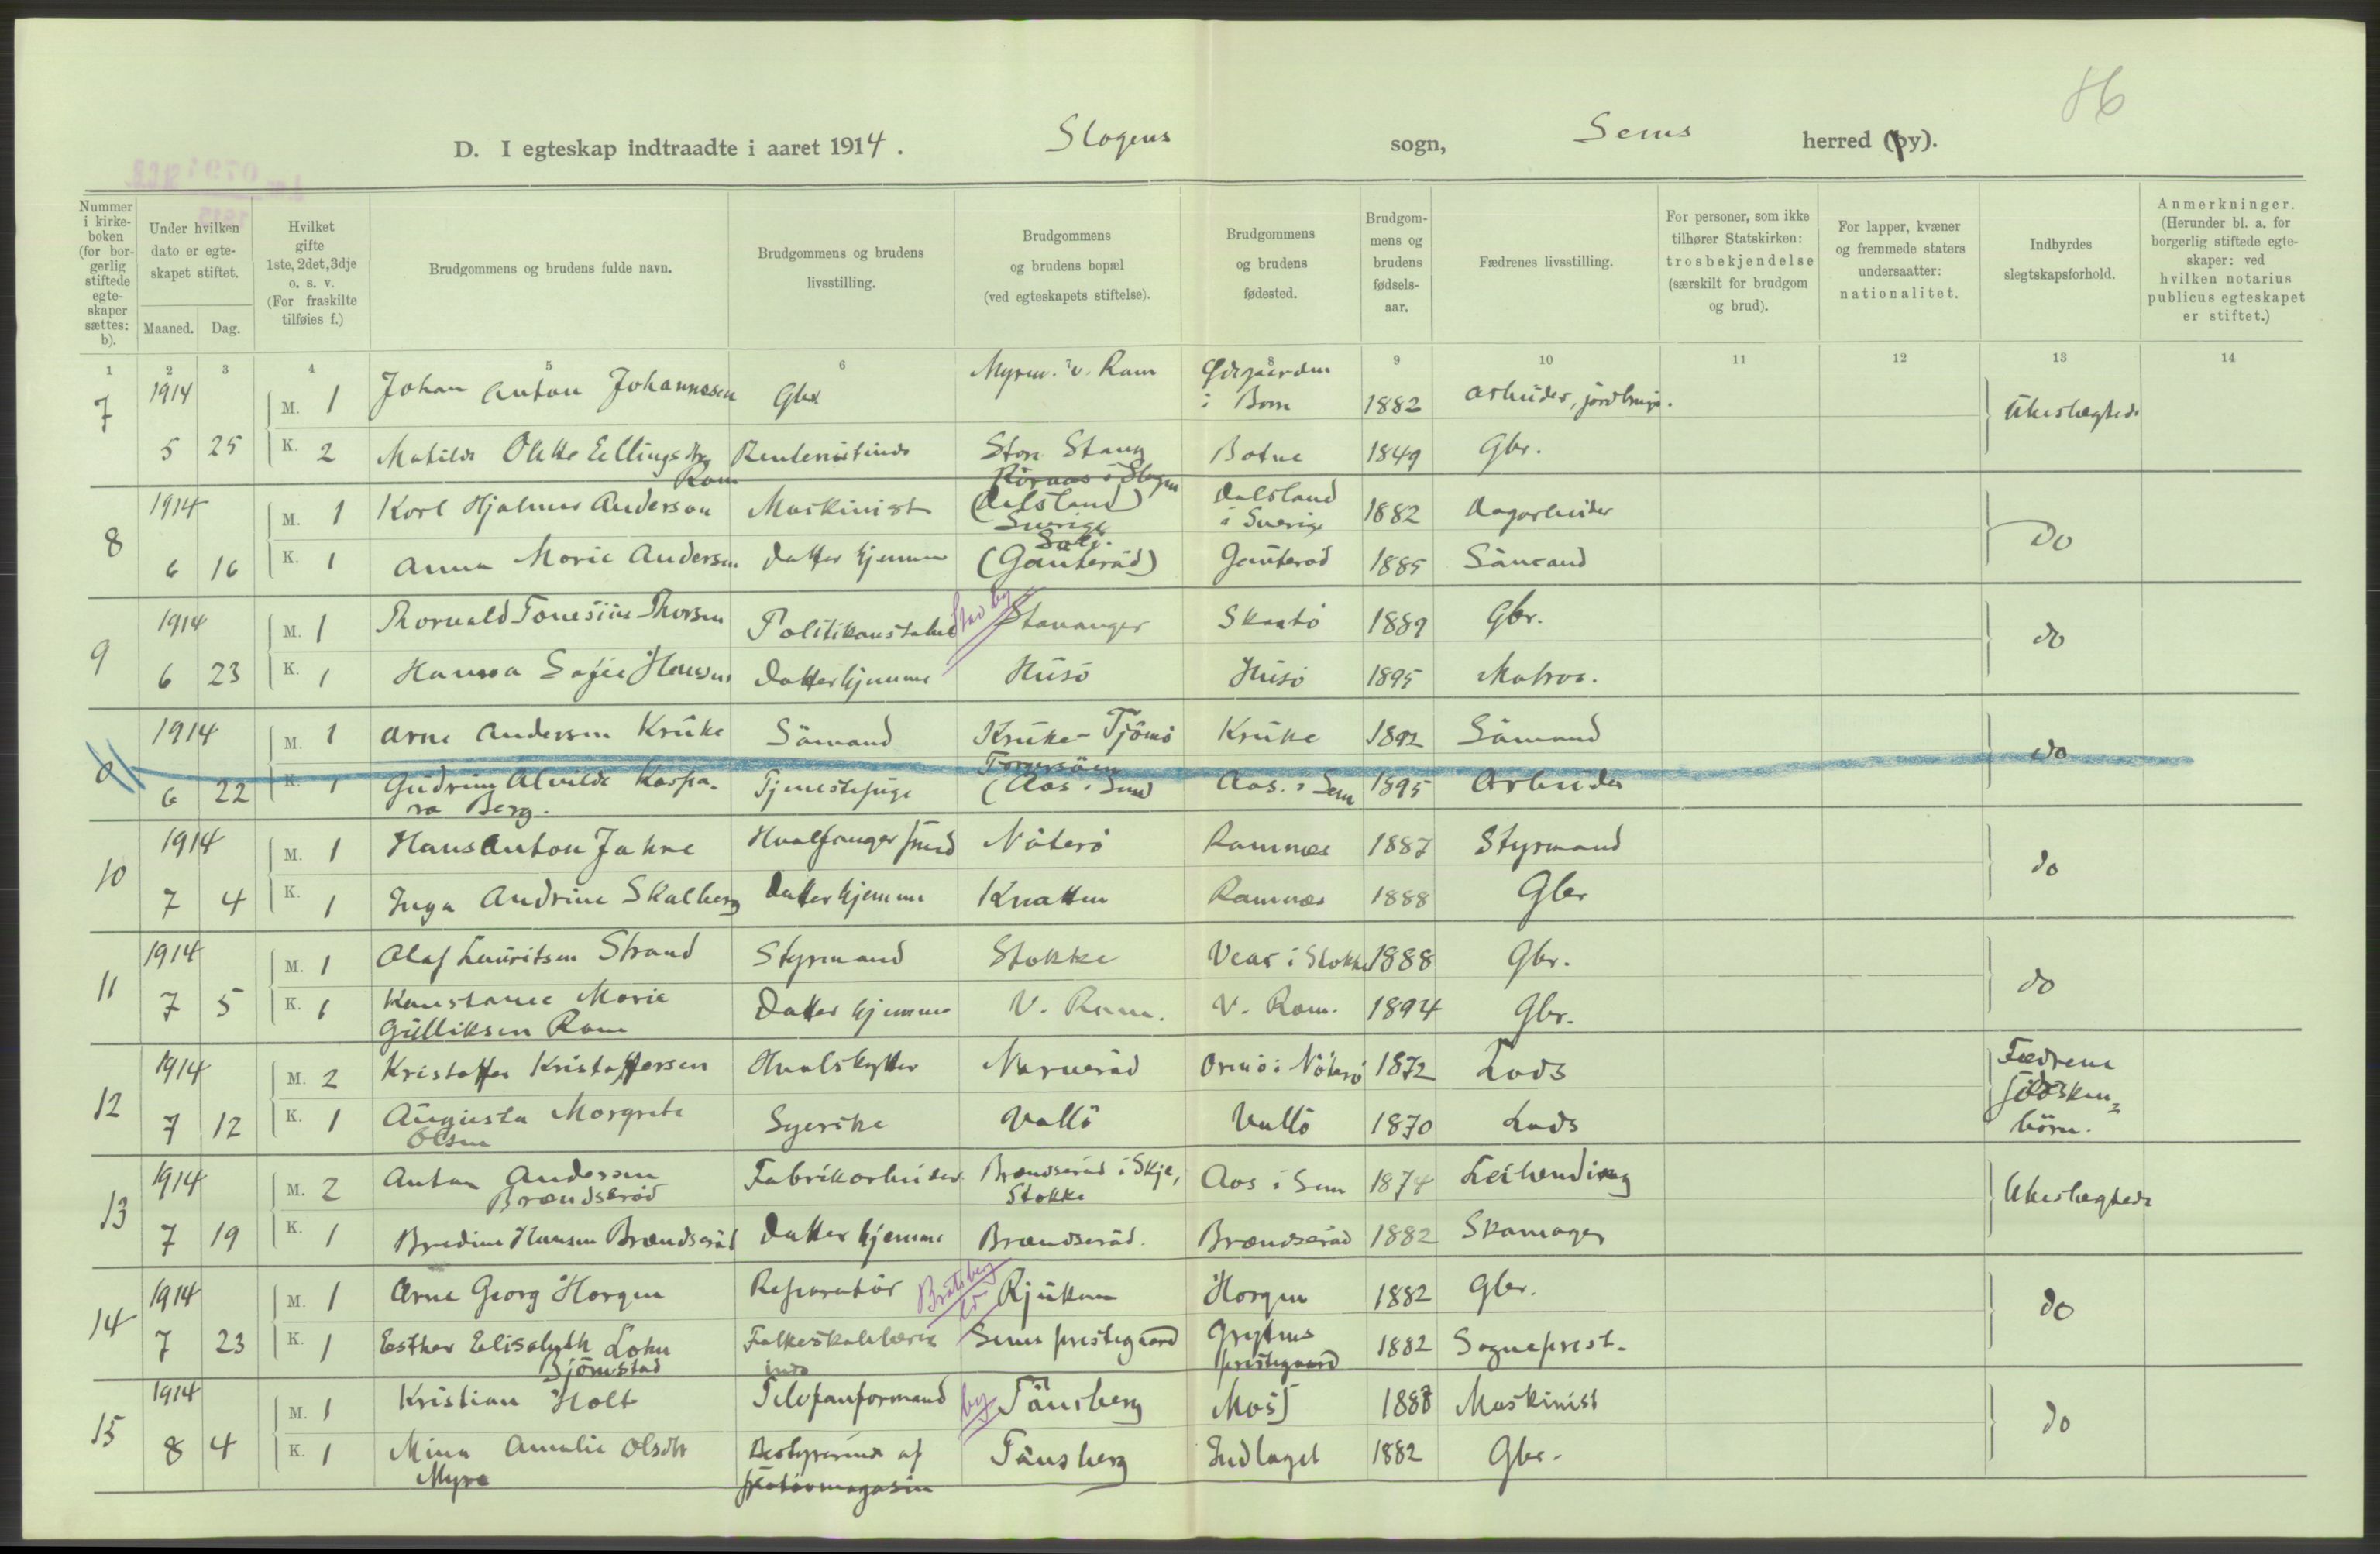 H6
D. I egteskap indtraadte i aaret 1914. Slagens sogn, Sems herred (by).
Nummer i kirke-boken (for bor-gerlig stiftede egte-skaper sættes: b).
Under hvilken dato er egte-skapet stiftet.
Maaned. Dag.
Hvilket gifte 1ste, 2det, 3dje o. s. v. (For fraskilte tilføies f.)
Brudgommens og brudens fulde navn.
Brudgommens og brudens livsstilling.
Brudgommens og brudens bopæl (ved egteskapets stiftelse).
Brudgommens og brudens fødested.
Brudgom-mens og brudens fødsels-aar.
Fædrenes livsstilling.
For personer, som ikke tilhører Statskirken: trosbekjendelse (særskilt for brudgom og brud).
For lapper, kvæner og fremmede staters undersaatter: nationalitet.
Indbyrdes slegtskapsforhold.
Anmerkninger. (Herunder bl. a. for borgerlig stiftede egte-skaper: ved hvilken notarius publicus egteskapet er stiftet.)
1 2 3 4 5 6 7 8 9 10 11 12 13 14
7 1914 M. 1 Johan Anton Johannesen Gbr. v. Ram i Borre 1882 Arbeider, jordbruger. Ubeslægtede
5 25 K. 2 Matilde Ellingsdtr Ram Rentenistinde Store Stang Botne 1849 Gbr.
8 1914 M. 1 Karl Hjalmar Anderson Maskinist Röraas i Slagen (Dalsland Sverige) Dalsland i Sverige 1882 Dagarbeider Do
6 16 K. 1 Anna Marie Andersen Datter hjemme (Gauteröd) Gauteröd 1885 Sömand
9 1914 M. 1 Thorvald Thorsen Politikonstabel Stav by Stavanger Skaatö 1889 Gbr. do
6 23 K. 1 Hanna Sofie Hansen Datter hjemme Husö Husö 1895 Matros.
1914 M. 1 Arne Andersen Kruke Sömand Kruke - Tjömö Kruke 1892 Sömand do
6 22 K. 1 Gudrun Alvilde Kaspa-
ra Berg. Tjenestepige (Aas i Sem) Aas i Sem 1895 Arbeider
10 1914 M. 1 Hans Anton Jahre Hvalfanger Nöterö Ramnes 1887 Styrmand do
7 4 K. 1 Inga Andrine Skalberg Datter hjemme Knatten Ramnes 1888 Gbr
11 1914 M. 1 Olaf Lauritsen Strand Styrmand Stokke Vear i Stokke 1888 Gbr. do
7 5 K. 1 Konstance Marie
Gulliksen Ram Datter hjemme V. Ram. V. Ram. 1894 Gbr.
12 1914 M. 2 Kristoffer Kristoffersen Hvalskytter Narveröd Ormö i Nöterö 1872 Lods Fædrene södsken-
börn.
7 12 K. 1 Augusta Margrete
Olsen Syerske Vallö Vallö 1870 Lods
13 1914 M. 2 Anton Andersen
Brændseröd Fabrikarbeider. Brændseröd i Skje,
Stokke Aas i Sem 1874 Leilending Ubeslægtede
7 19 K. 1 Bredine Hansen Brændseröd Datter hjemme Brændseröd. Brændseröd 1882 Skomager
14 1914 M. 1 Arne Georg Horgen Reparatör Bratsberg Rjukan Horgen 1882 Gbr. do
7 23 K. 1 Esther Elisabeth Lohn
Björnstad Folkeskolelærer
inde Sems prestegaard Grytens
prestegaard 1882 Sogneprest.
15 1914 M. 1 Kristian Holt Telefonformand by Tönsberg Moss 1888 Maskinist do
8 4 K. 1 Mina Amalie Olsdtr
Myre Bestyrerinde af Tönsberg Indlaget 1882 Gbr.